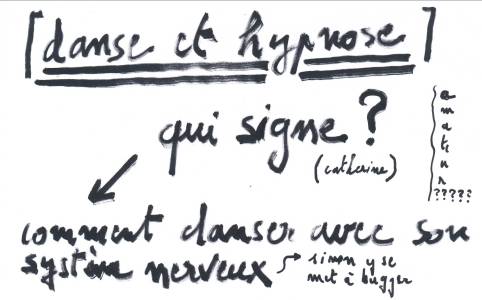 [danse et hypnose]
qui signe ?
(catherine)
amateur
?????
comment danser avec son
système nerveux → sinon y se
met à bugger